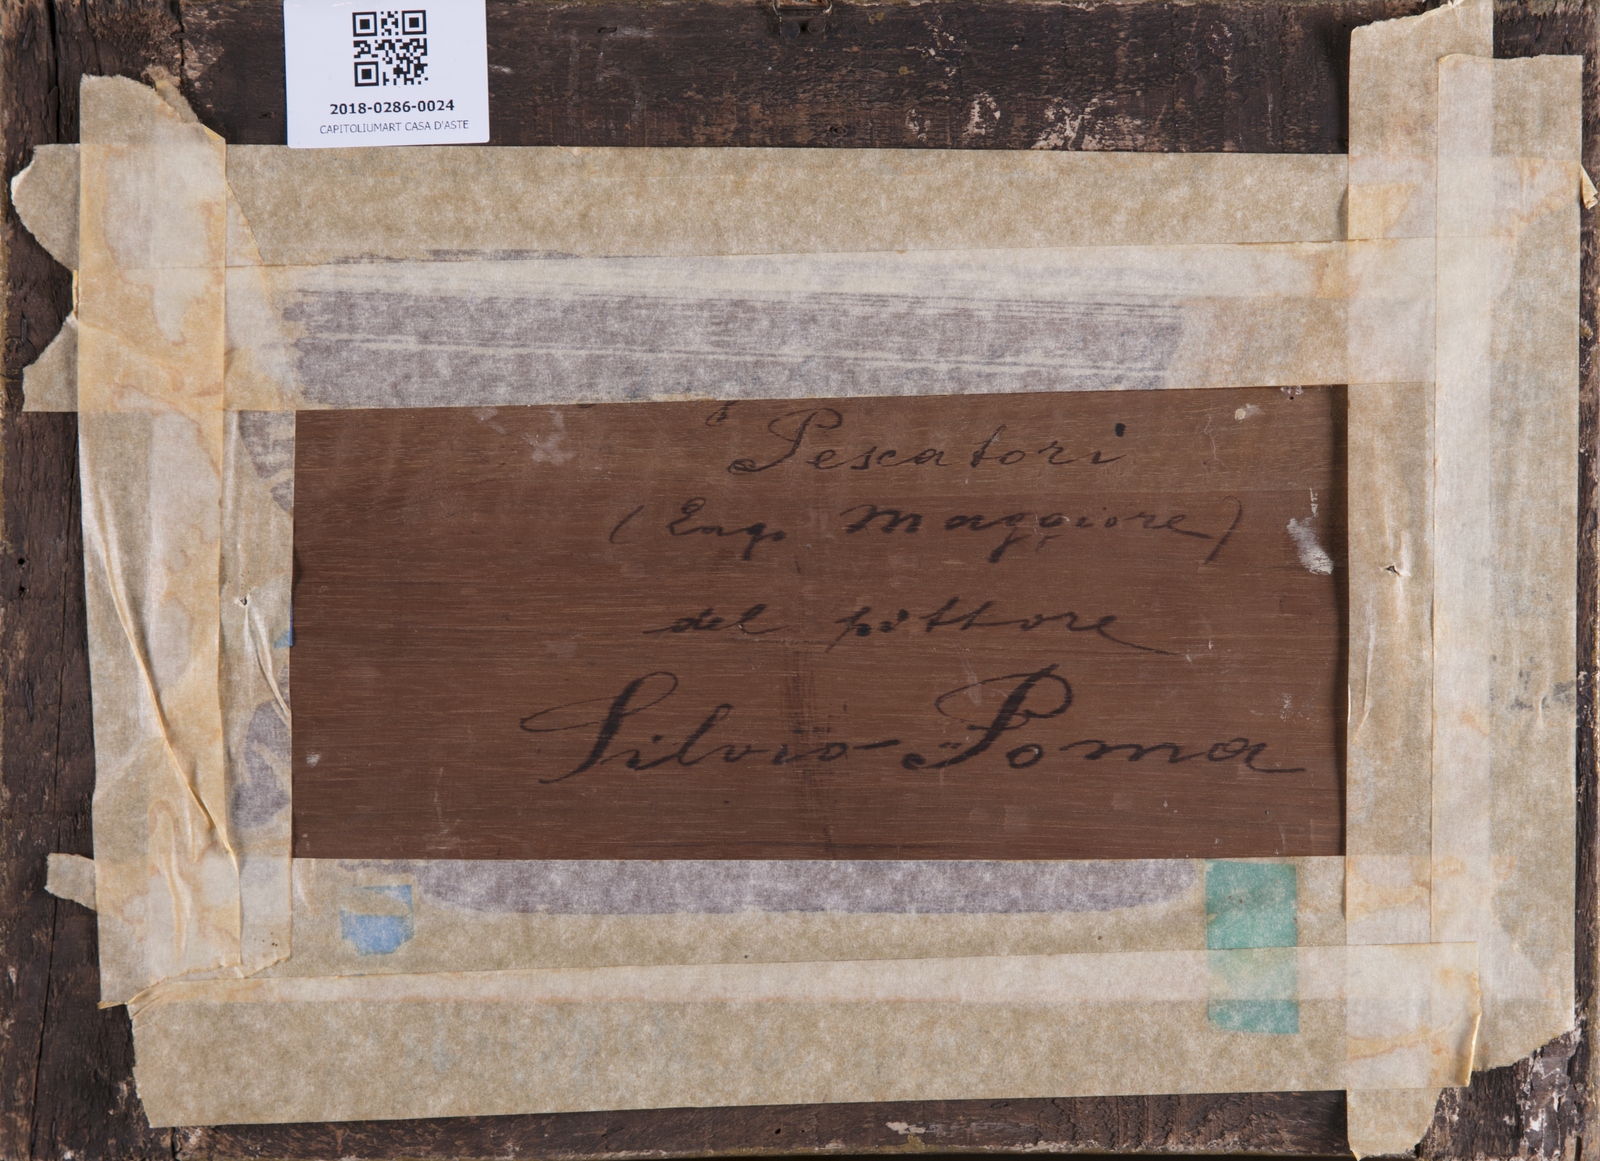 2018-0286-0024
CAPITOLIUMART CASA D'ASTE
Pescatori
(Lago Maggiore)
del pittore
Silvio Poma